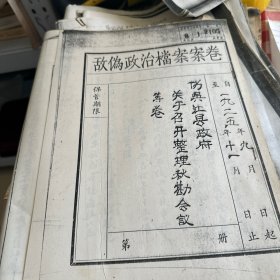 敌偽政治檔案案卷
自一九二五年九月 日起
至 年十一月 日止
伪興止县政府
关于召开整理秋勘会议
等卷
保管期限
第 册